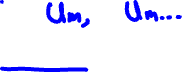 Um, Um...